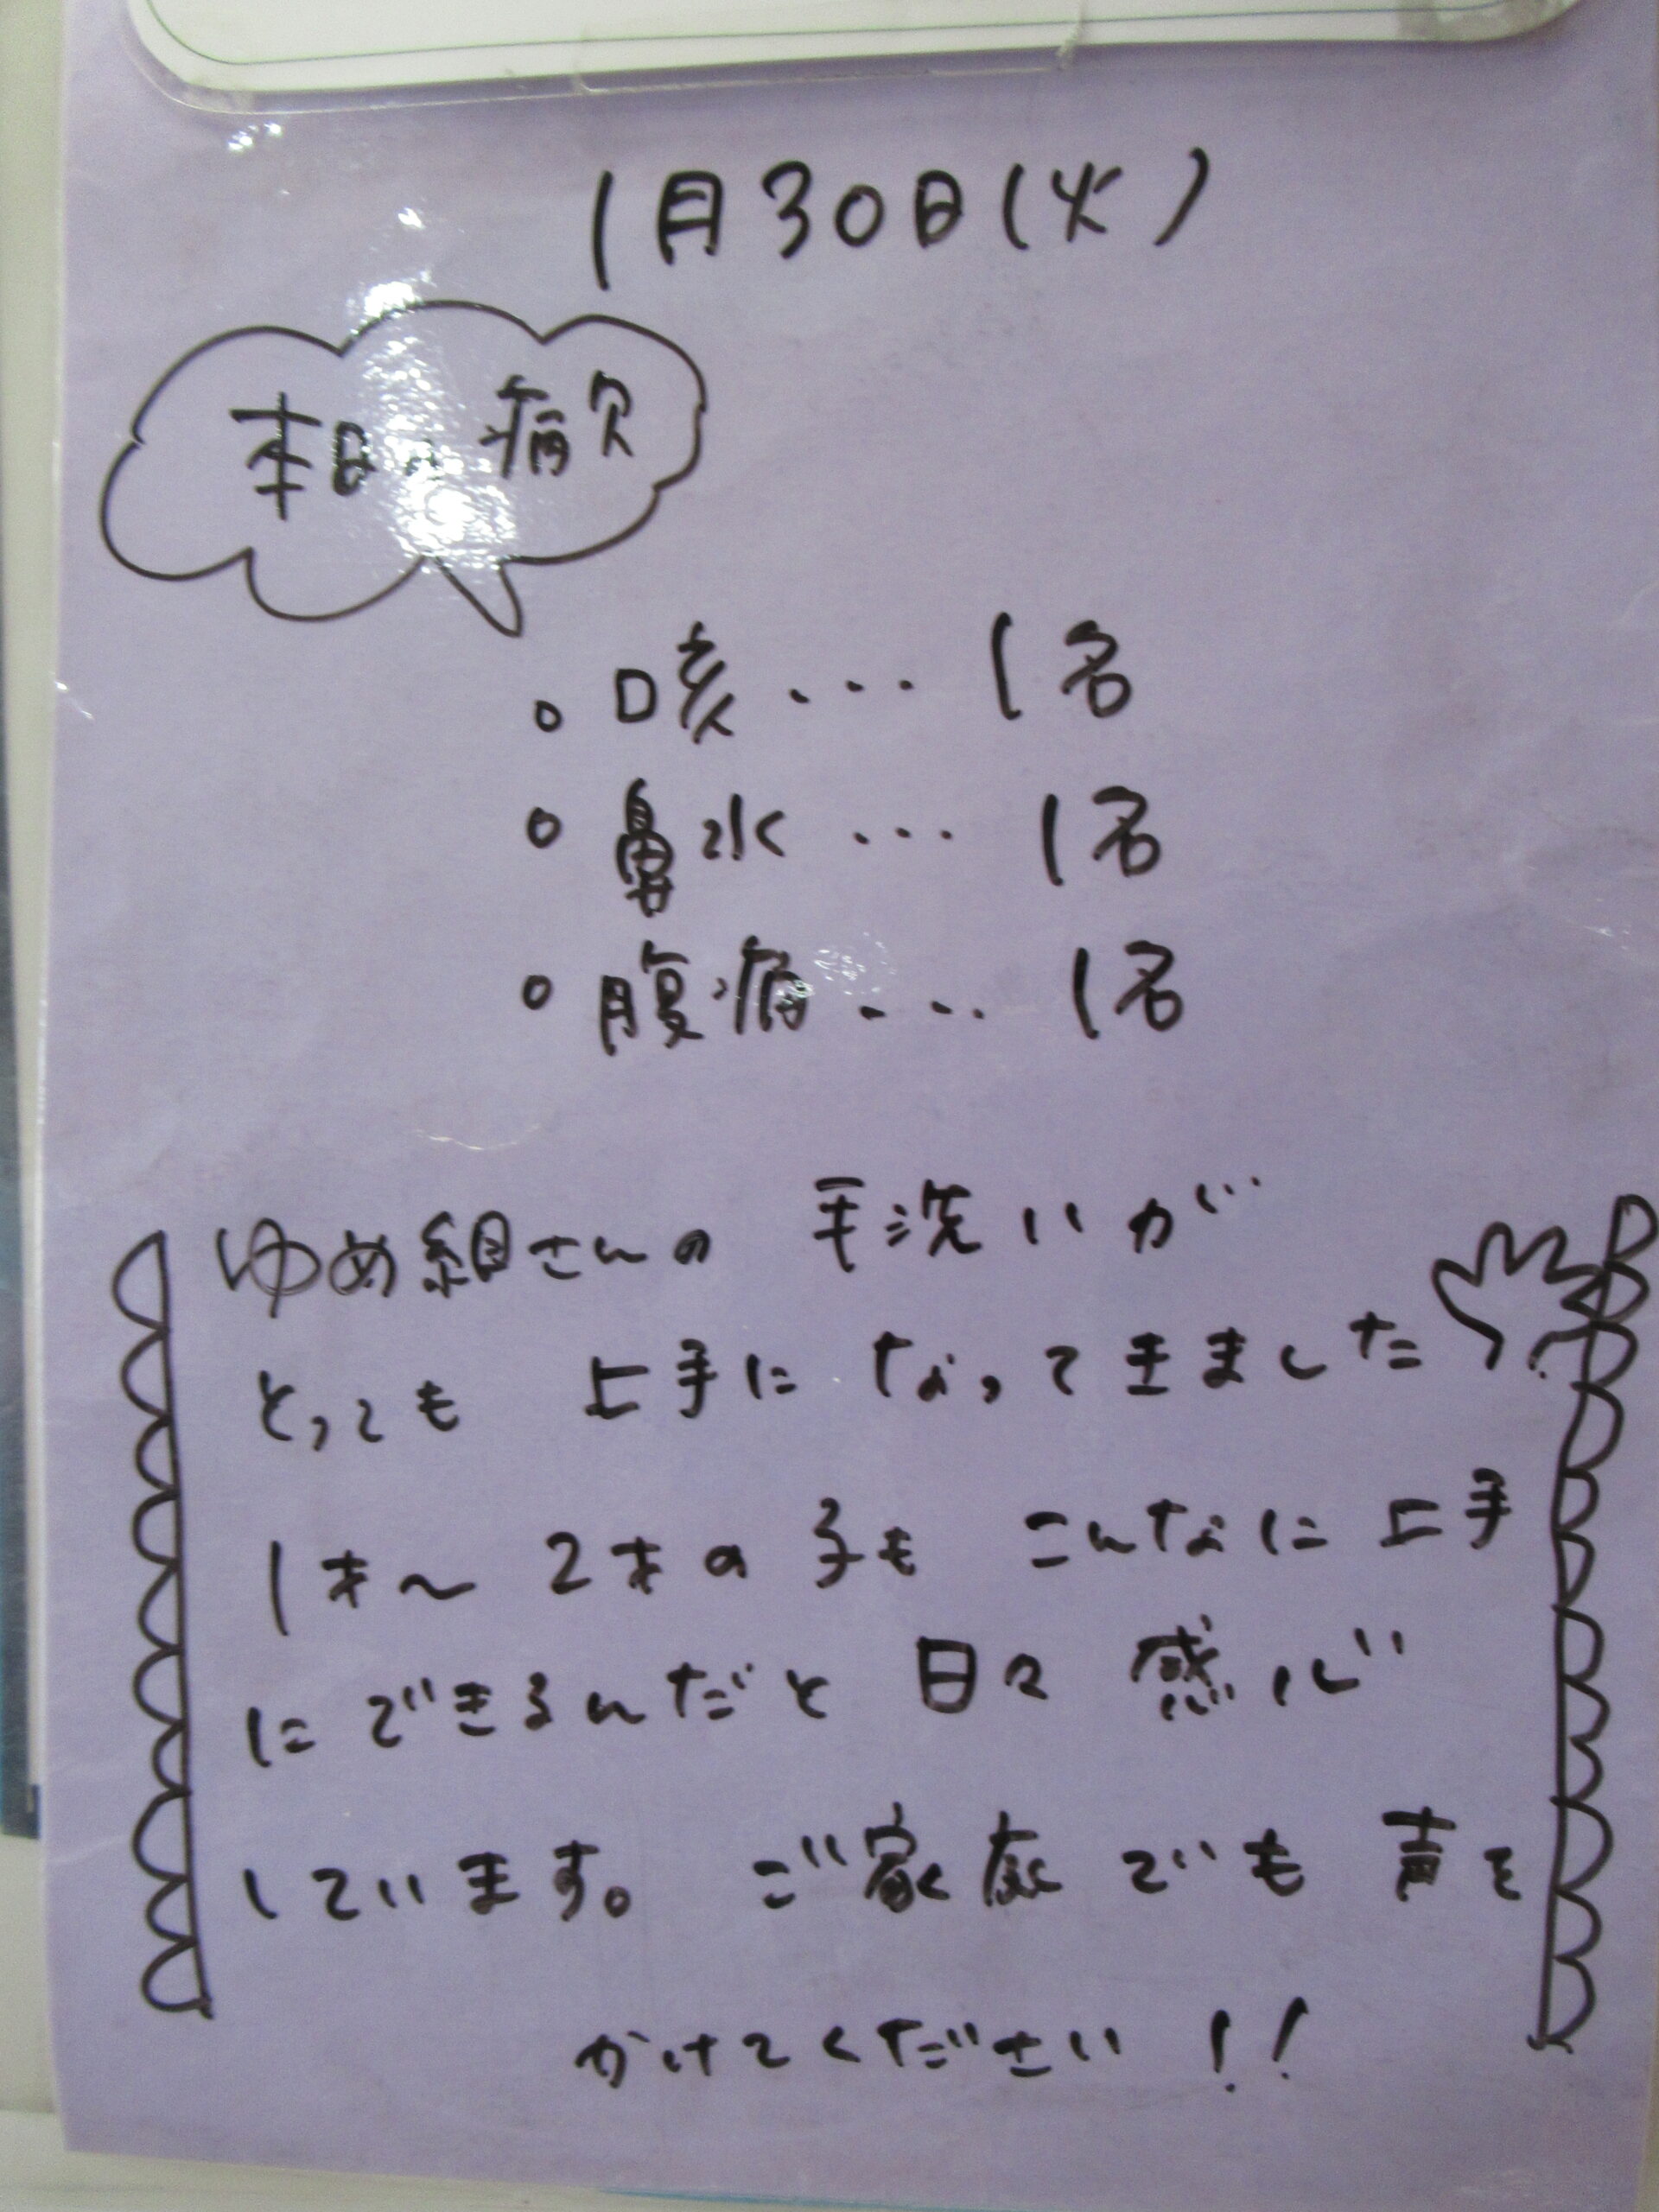 1月30日(火)
本日の病欠
。咳・・・1名
。鼻水・・・1名
。腹痛・・・1名
ゆめ組さんの 手洗いが
とっても 上手に なってきました
1才〜 2才の子も こんなに上手
にできるんだと 日々 感心
しています。 ご家庭でも 声を
かけてください!!